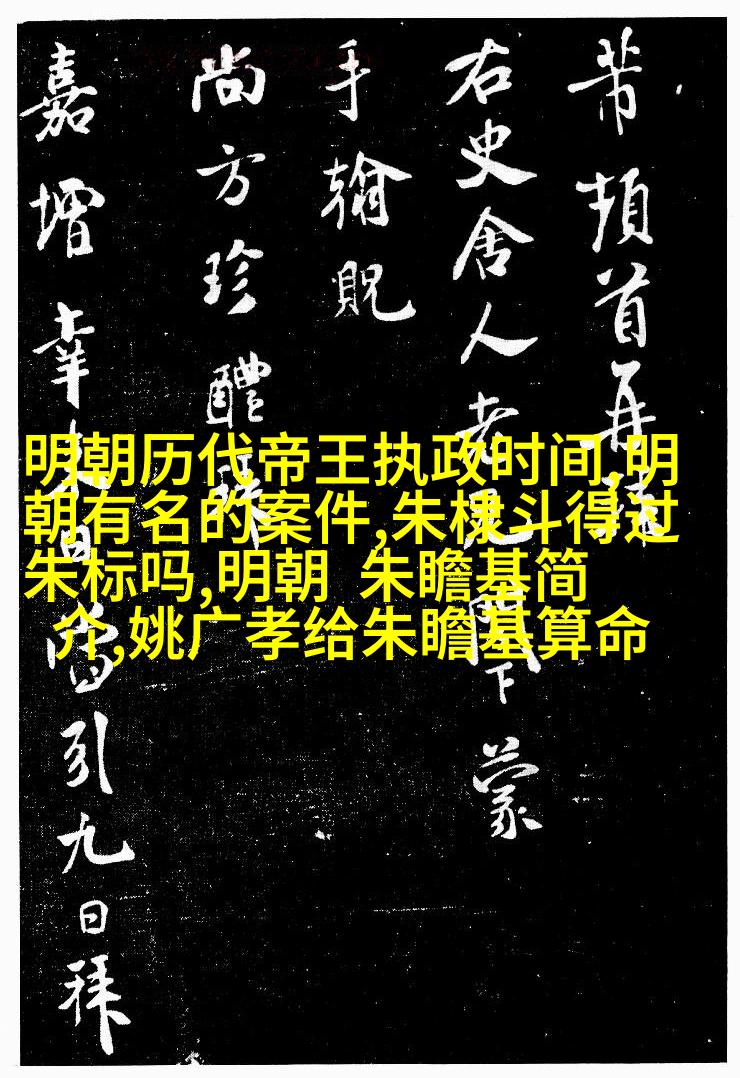 芾頓首再
右史舍人老下蒙
手翰貺
尚方珍醴
嘉增幸引九日拜
明朝历代帝王执政时间,明
朝有名的案件,朱棣斗得过
朱标吗,明朝 朱瞻基简
介,姚广孝给朱瞻基算命